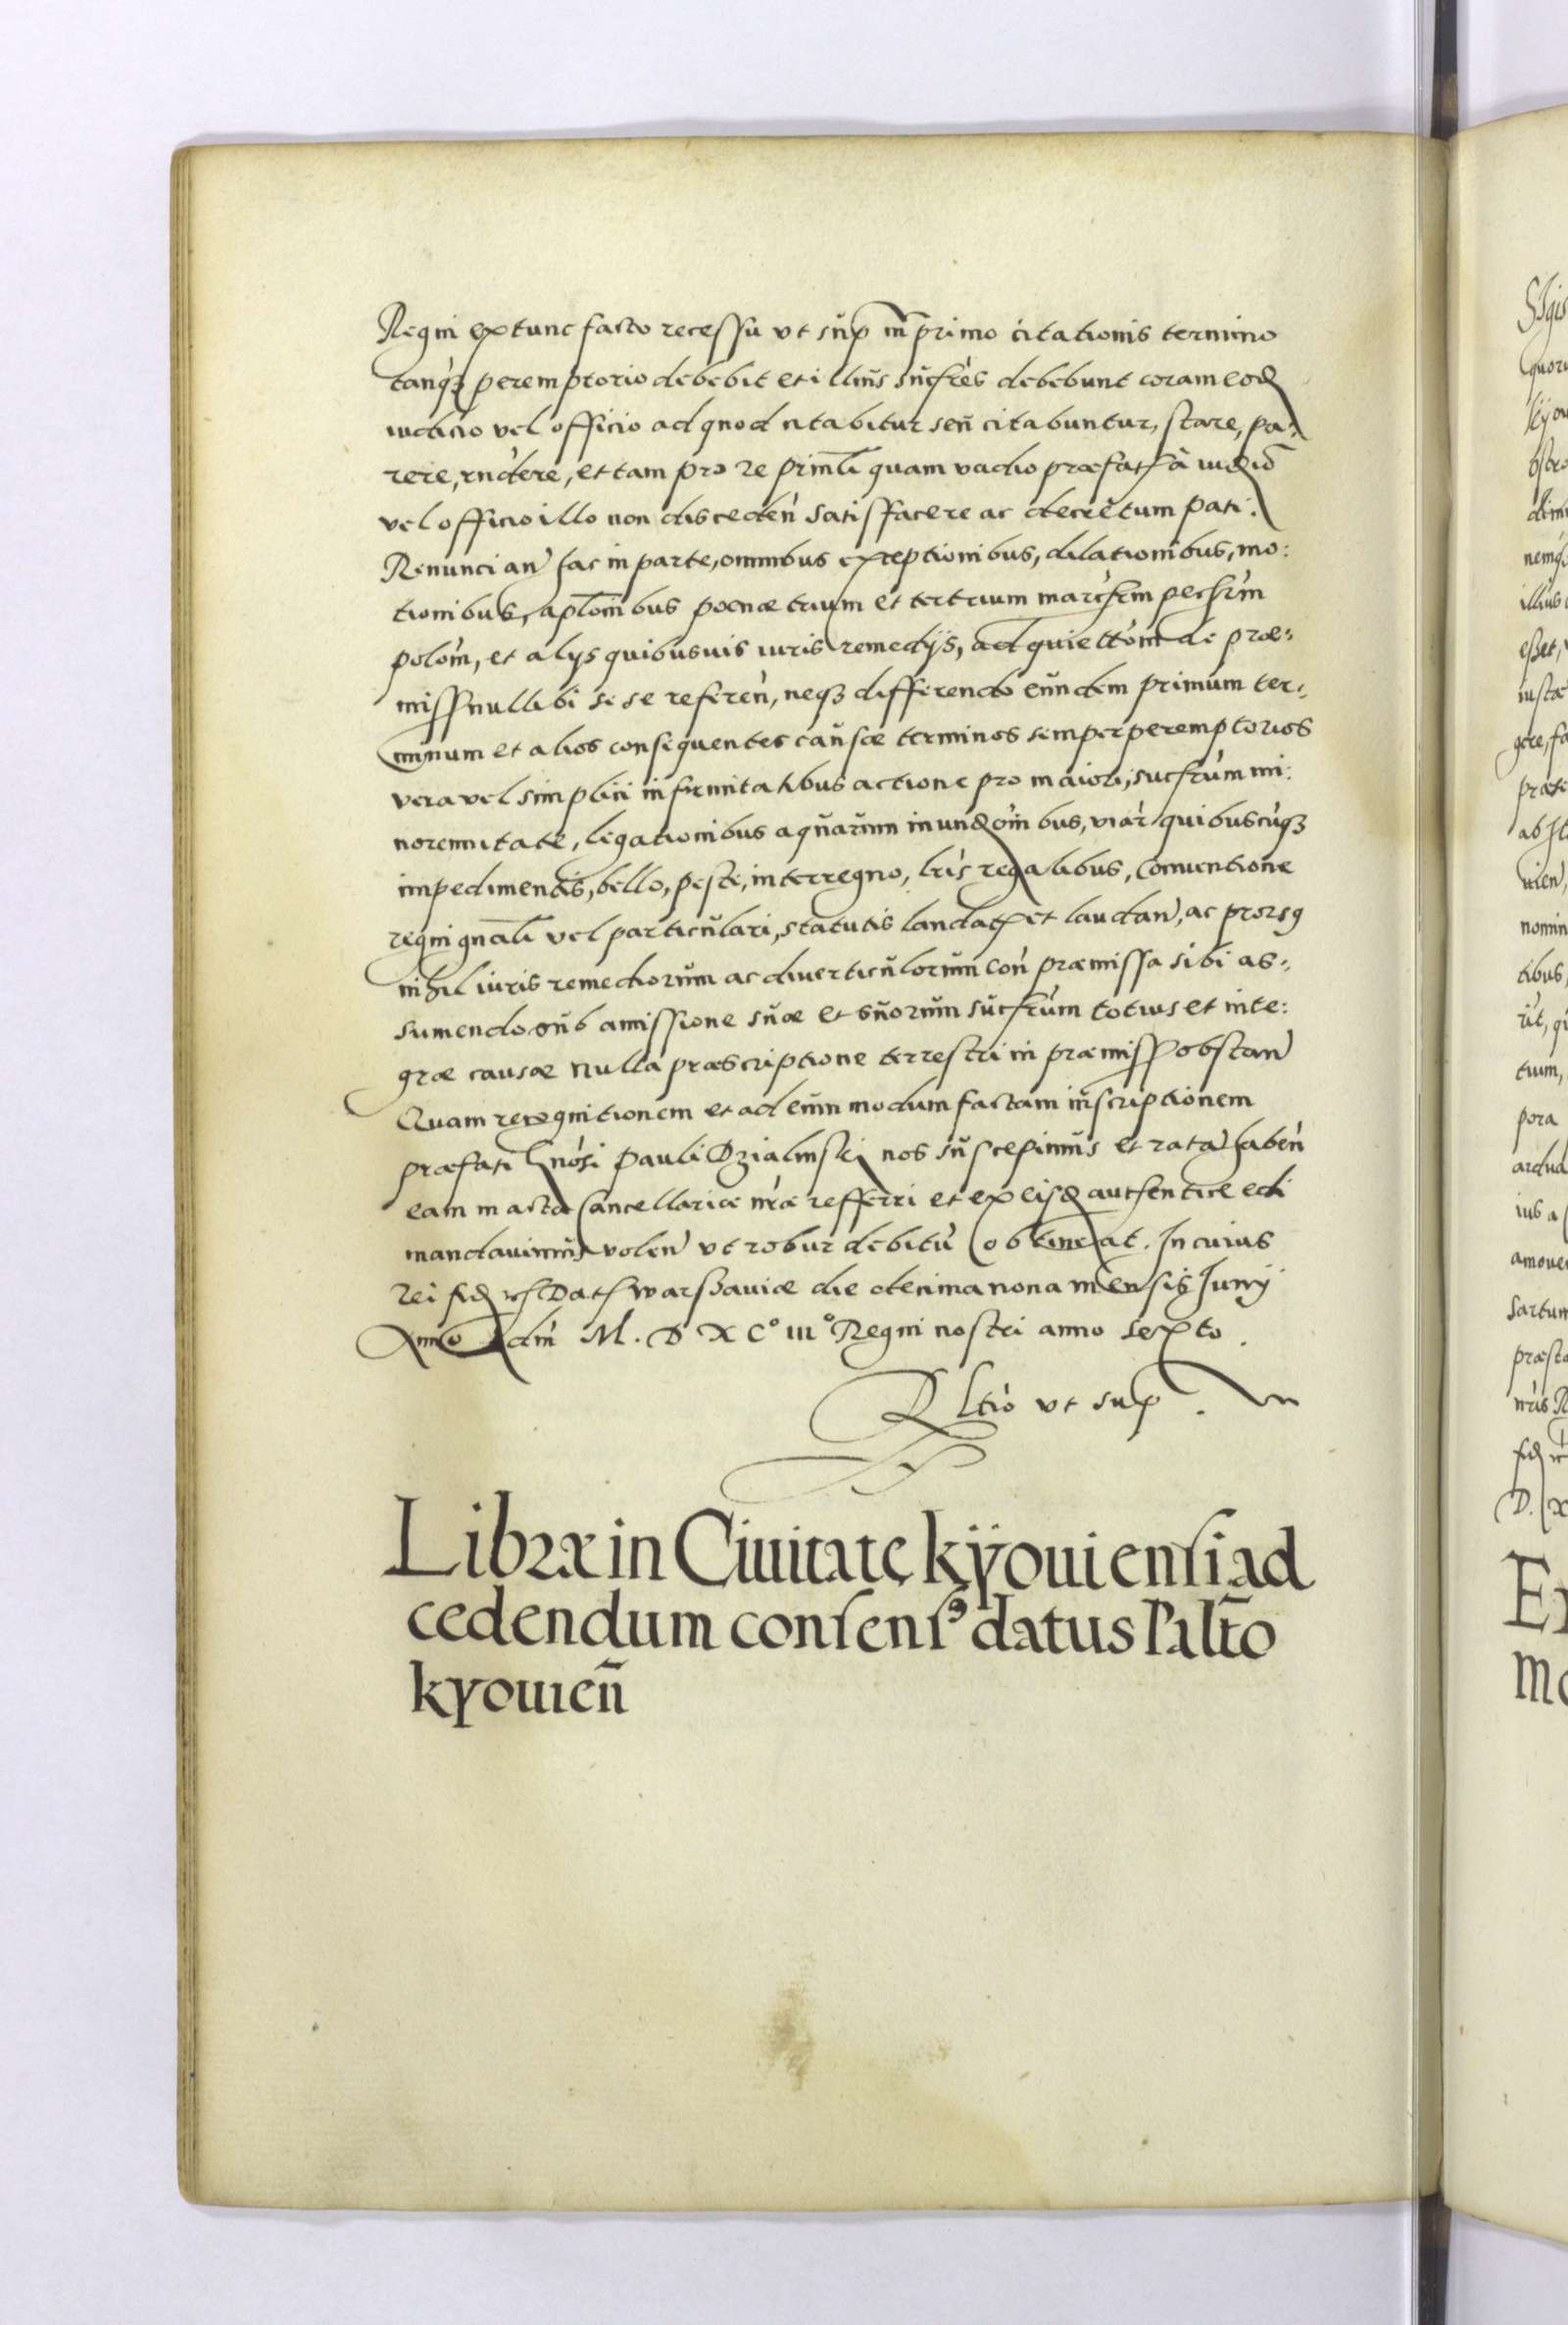 Regni extunc facto recessu ut sup in primo citationis termino
tanqз peremptorio debebit et illius succres debebunt coram eod
iudicio vel officio ad quod citabitur seu citabuntur, stare, pa:
rere, rndere, et tam pro re prinli quam vadio præfat, a iudio
vel officio illo non disceden satisfacere ac decretum pati.
Renuncian hac in parte, omnibus exceptionibus, dilationibus, mo:
tionibus, aplonibus pœnæ trium et tertrium march pechm
polom, et alys quibusuis iuris remedijs, ad quiettom de præ:
miss nullibi se se referen, neqз differendo eundem primum ter:
minum et alios consequentes causæ terminos semper peremptorios
vera vel simplici infirmitatibus actione pro maiori, succrum mi:
norennitate, legationibus aquarum inundoinbus, viar quibuscuqз
impedimentis, bello, peste, interregno, lris regalibus, Conuentione
regni gnali vel particulari, statutis laudat et laudan, ac prorsꝯ
nihil iuris remediorum ac diverticulorum con præmissa sibi as:
sumendo sub amissione suæ et suorum succrum totius et inte:
græ causæ nulla præscriptione terrestri in præmiss obstan
Quam recognitionem et ad eum modum factam inscriptionem
præfati Gnosi Pauli Dzialinski nos suscepimus et rata haben
eam in acta Cancellariæ nræ refferri et ex eisd authentice edi
mandavimus volen ut robur debitu obtineat. In cuius
rei fid Dat Warssaviæ die decima nona mensis Junij
Anno dni M. D XC° III° Regni nostri anno sexto.
Rltio ut sup.
Libræ in Ciuitate kÿouiensi ad
cedendum consensꝰ datus Palt̃o
kyouieñ